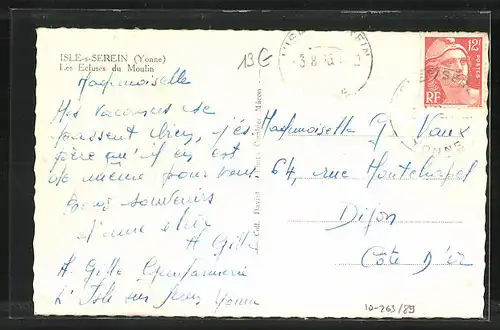 ISLE-s-SEREIN (Yonne)
Les Ecluses du Moulin
13€
3 8
12F
POSTES
RF
YONNE
Mademoiselle
Mes vacances se
passent bien, j'es-
père qu'il en est
de même pour vous.
Bons souvenirs
d'une élève
A Gitta
A Gitta Gendarmerie
L'Isle sur Yonne
Mademoiselle G Vaux
64, rue Montchapet
Dijon
Côte D'or
Coll. Mâcon
10-263/89